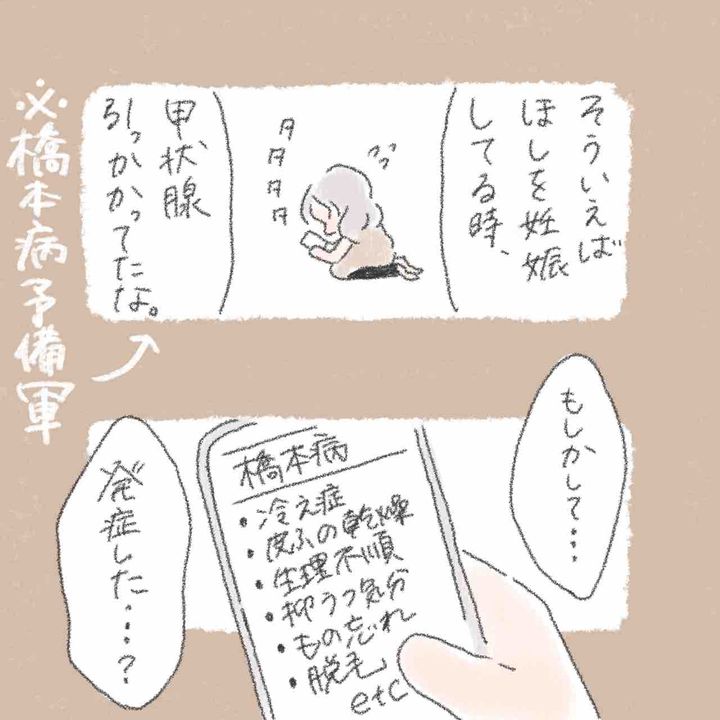 そういえば
ほしを妊娠
してる時、
タタタタ
甲状腺
引っかかってたな。
※橋本病予備軍
もしかして・・・
橋本病
・冷え症
・皮ふの乾燥
・生理不順
・抑うつ気分
・もの忘れ
・脱毛
etc
発症した・・・？